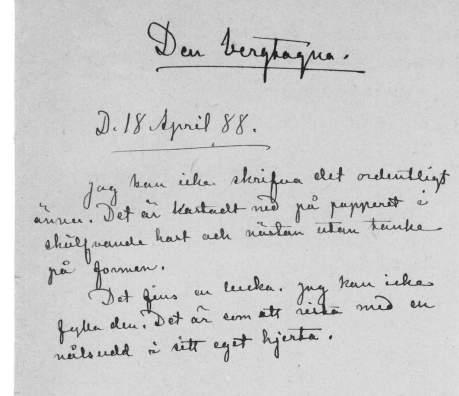 Den bergtagna.
D. 18 April 88.
Jag kan icke skrifva det ordentligt
ännu. Det är kastadt ned på papperet i
skälfvande hast och nästan utan tanke
på formen.
Det fins en lucka. Jag kan icke
fylla den. Det är som att rista med en
nålsudd i sitt eget hjerta.